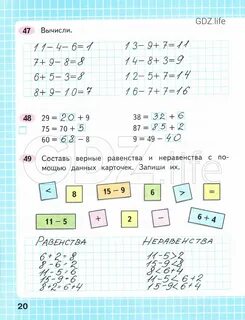 GDZ.life
47 Вычисли.
11-4-6=1 13-9+7=11
7+9-8=8 14-8+3=9
6+5-3=8 12-5+7=14
8+9-10=7 16
48 29 = 20 + 9 38 = 32 + 6
75 = 70 + 5 87 = 85 + 2
60 = 68 - 8 9 = 49 - 40
49 Составь верные равенства и неравенства с по-
мощью данных карточек. Запиши их.
< 8 15 - 9 6 >
11 - 5 + 2 - = 6 + 4
РАВЕНСТВА НЕРАВЕНСТВА
6+2=8 11-5>2
8-6=2 15-9<8
11-5=6 8<6+4
15-9=6 11-5<6+2
8+2=6+4 15-9<6+4
20